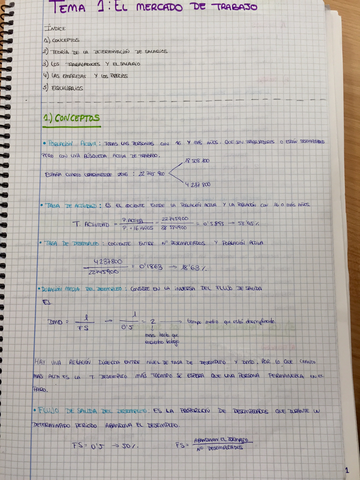 TEMA 1: EL MERCADO DE TRABAJO
ÍNDICE
1) CONCEPTOS
2) TEORÍA DE LA DETERMINACIÓN DE SALARIOS
3) LOS TRABAJADORES Y EL SALARIO
4) LAS EMPRESAS Y LOS PRECIOS
5) EQUILIBRIOS
1.) CONCEPTOS
• POBLACIÓN ACTIVA: TODAS LAS PERSONAS CON 16 Y MÁS AÑOS, QUE SON TRABAJADORES O ESTÁN DESEMPLEADOS
PERO CON UNA BÚSQUEDA ACTIVA DE TRABAJO.
ESPAÑA CUARTO TRIMESTRE 2016: 22 745 900
4 237 800
• TASA DE ACTIVIDAD: ES EL COCIENTE ENTRE LA POBLACIÓN ACTIVA Y LA POBLACIÓN CON 16 O MÁS AÑOS.
T. ACTIVIDAD = P. ACTIVA / P. > 16 AÑOS
• TASA DE DESEMPLEO: COCIENTE ENTRE Nº DESEMPLEADOS Y POBLACIÓN ACTIVA
4237800 / 22745900 = 0'1863 → 18'63 %
• DURACIÓN MEDIA DEL DESEMPLEO: CONSISTE EN LA INVERSA DEL FLUJO DE SALIDA
EL
DMD = 1 / FS → 1 / 0'5 = 2 → tiempo medio que está desempleado
meses hasta que encuentra trabajo
HAY UNA RELACIÓN DIRECTA ENTRE NIVEL DE TASA DE DESEMPLEO Y DMD, POR LO QUE CUANTO
MÁS ALTA ES LA T. DESEMPLEO MÁS TIEMPO SE ESPERA QUE UNA PERSONA PERMANEZCA EN EL
PARO.
• FLUJO DE SALIDA DEL DESEMPLEO: ES LA PROPORCIÓN DE DESEMPLEADOS QUE DURANTE UN
DETERMINADO PERIODO ABANDONA EL DESEMPLEO.
FS = 0'5 → 50 % FS = ABANDONAN EL DESEMPLEO / Nº DESEMPLEADOS
1